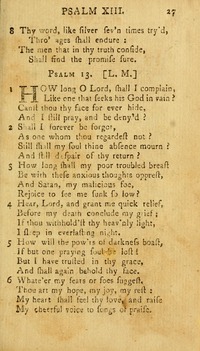 PSALM XIII. 27
8 Thy word, like silver sev'n times try'd,
Thro' ages shall endure:
The men that in thy truth confide,
Shall find the promise sure.
PSALM 13. [L. M.]
1 HOW long O Lord, shall I complain,
Like one that seeks his God in vain?
Canst thou thy face for ever hide,
And I still pray, and be deny'd?
2 Shall I forever be forgot,
As one whom thou regardest not?
Still shall my soul thine absence mourn?
And still despair of thy return?
5 How long shall my poor troubled breast
Be with these anxious thoughts opprest,
And Satan, my malicious foe,
Rejoice to see me sunk so low?
4 Hear, Lord, and grant me quick relief,
Before my death conclude my grief;
If thou withhold'st thy heav'nly light,
I sleep in everlasting night.
5 How will the pow'rs of darkness boast,
If but one praying soul be lost!
But I have trusted in thy grace,
And shall again behold thy face.
6 Whate'er my fears or foes suggest,
Thou art my hope, my joy, my rest:
My heart shall feel thy love, and raise
My cheerful voice to songs of praise.